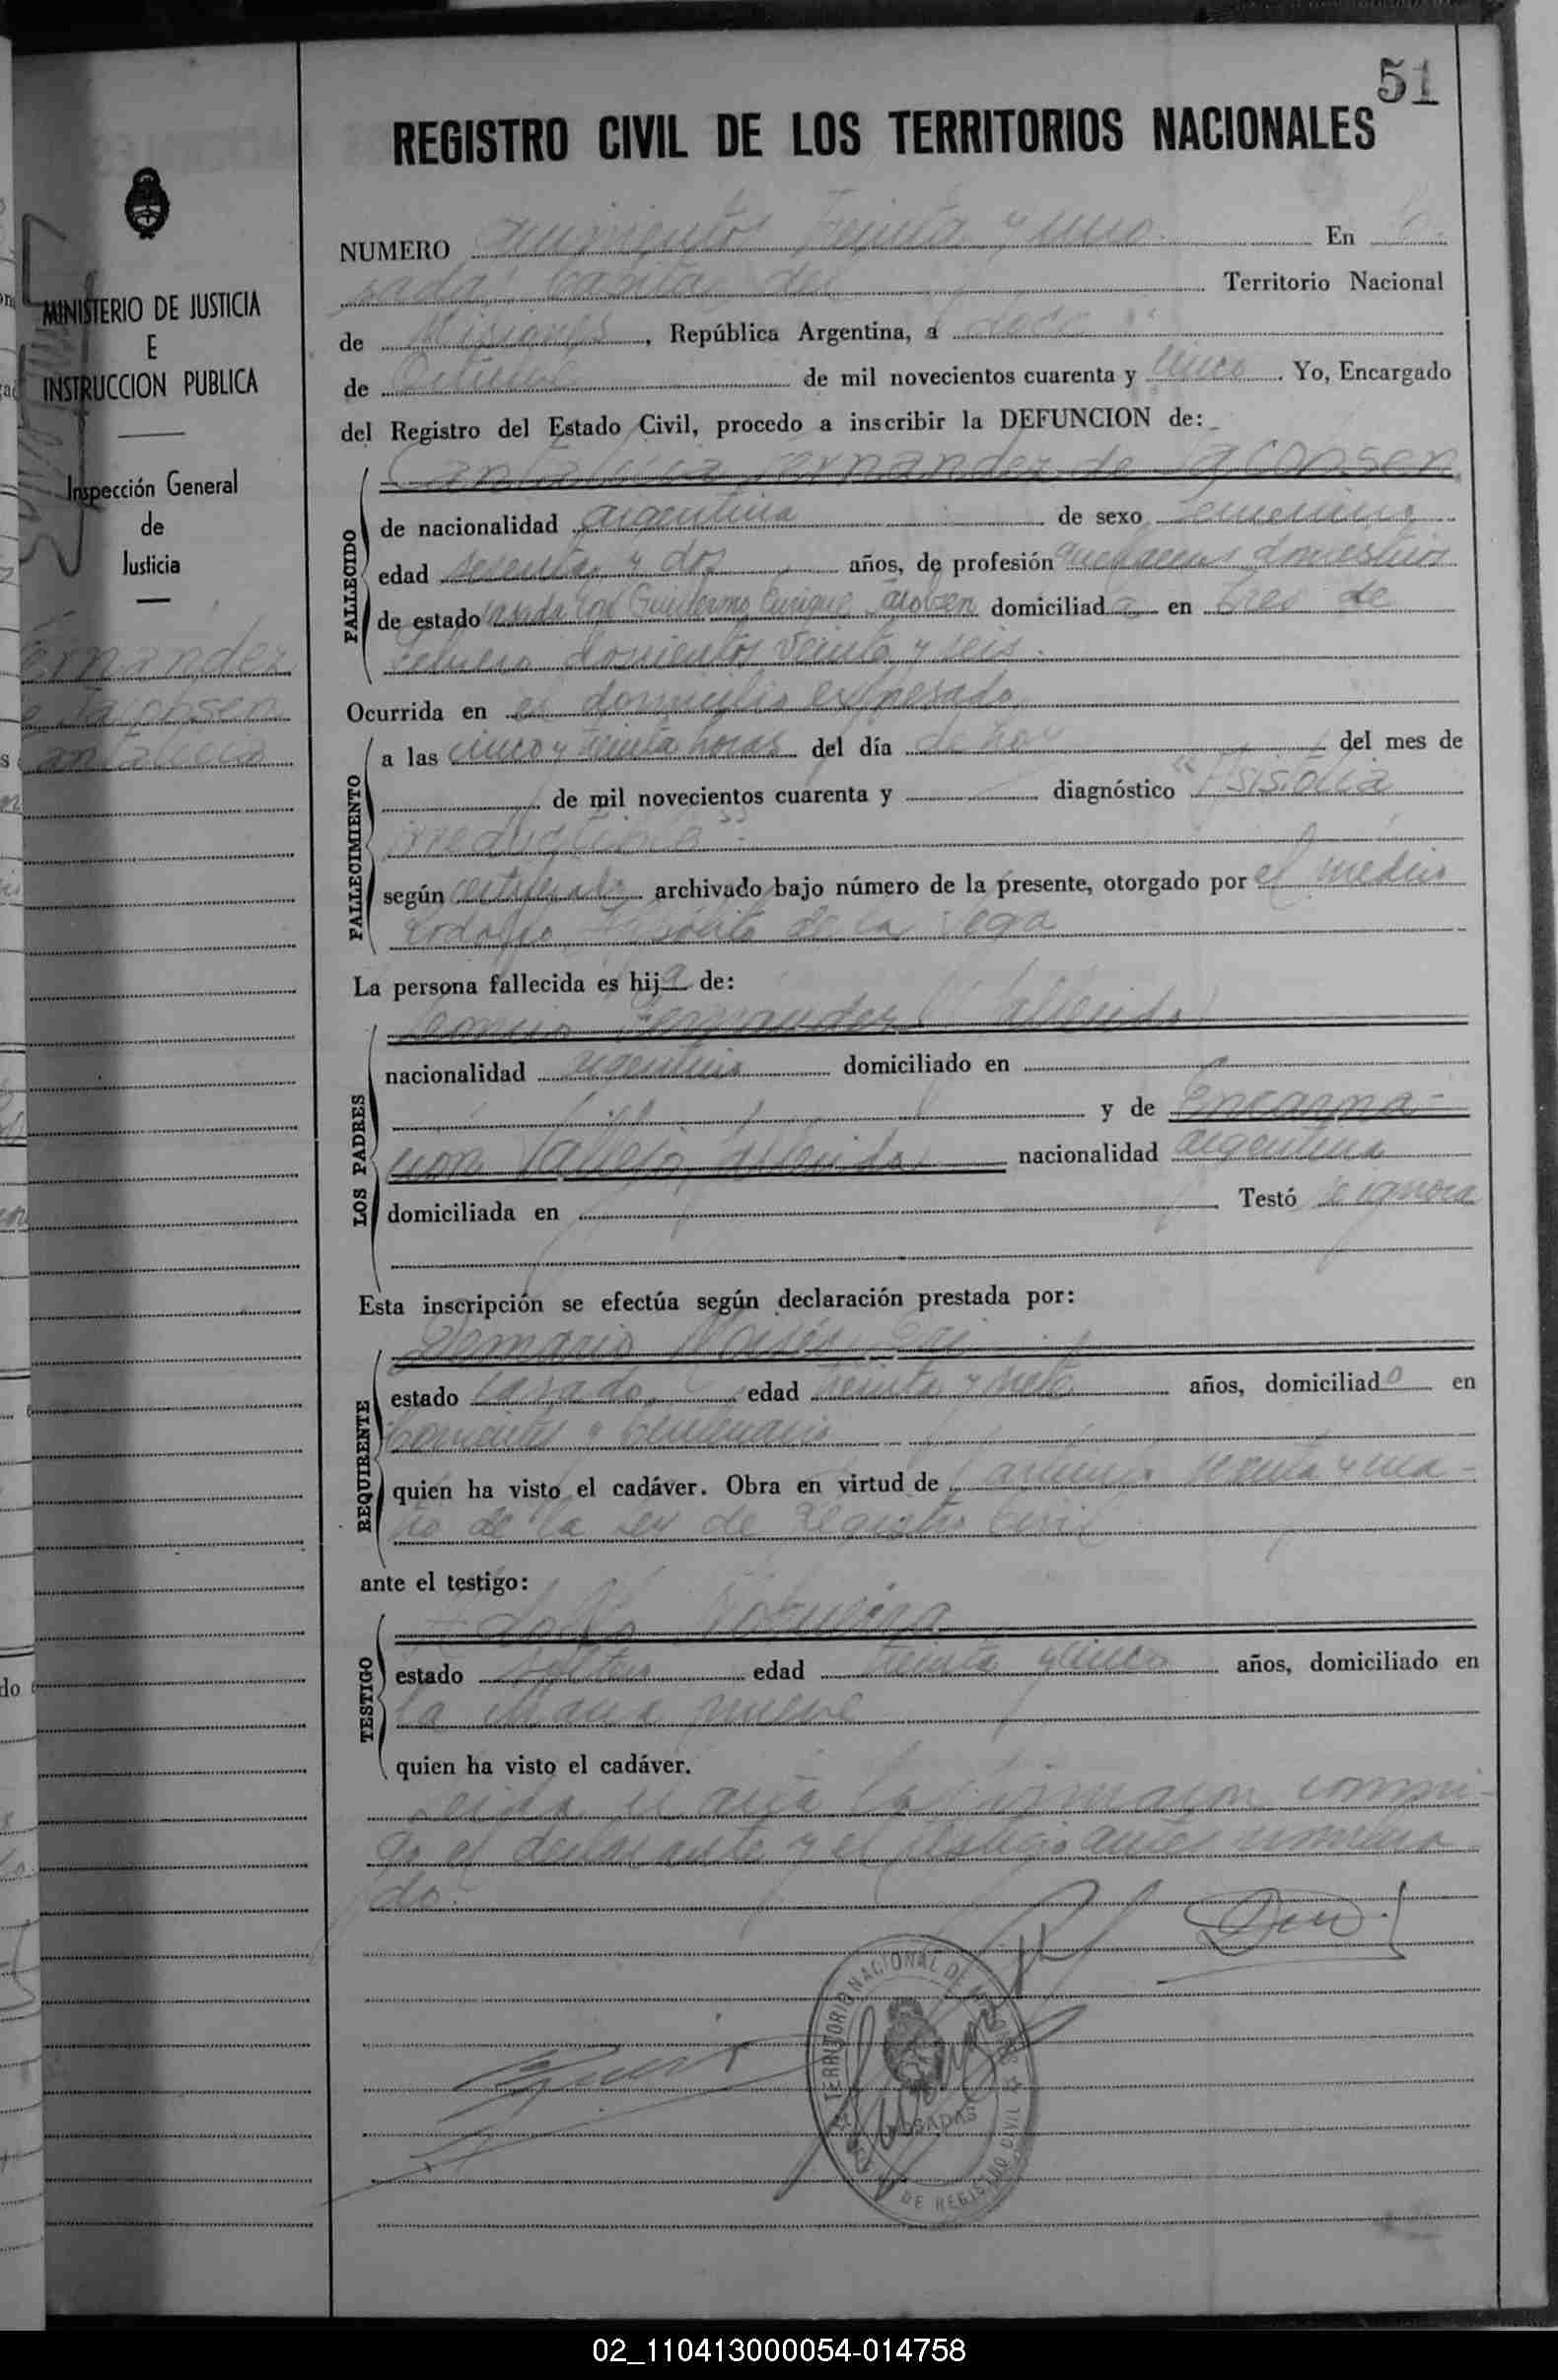 51
REGISTRO CIVIL DE LOS TERRITORIOS NACIONALES
MINISTERIO DE JUSTICIA
E
INSTRUCCION PUBLICA
Inspección General
de
Justicia
Fernandez
de Jacobsen
Cantalicia
NUMERO quinientos treinta y uno En Po-
sadas, Capital del Territorio Nacional
de Misiones, República Argentina, a doce
de Octubre de mil novecientos cuarenta y cinco. Yo, Encargado
del Registro del Estado Civil, procedo a inscribir la DEFUNCION de:
Cantalicia Fernandez de Jacobsen
FALLECIDO
de nacionalidad argentina de sexo femenino
edad sesenta y dos años, de profesión quehaceres domesticos
de estado casada con Guillermo Enrique Jacobsen domiciliada en tres de
Febrero doscientos veinte y seis.
Ocurrida en el domicilio expresado
FALLECIMIENTO
a las cinco y treinta horas del día de hoy del mes de
de mil novecientos cuarenta y diagnóstico "Asistolia
irreductible"
según certificado archivado bajo número de la presente, otorgado por el medico
Rodolfo Hipólito de la Vega
La persona fallecida es hija de:
LOS PADRES
Leoncio Fernandez (fallecido)
nacionalidad argentino domiciliado en
y de Encarna-
cion Vallejo, fallecida nacionalidad argentina
domiciliada en Testó se ignora
Esta inscripción se efectúa según declaración prestada por:
REQUIRENTE
estado casado edad treinta y siete años, domiciliado en
Corrientes y Centenario
quien ha visto el cadáver. Obra en virtud de articulo sesenta y cua-
tro de la Ley de Registro Civil
ante el testigo:
TESTIGO
Adolfo Nogueira
estado soltero edad treinta y cinco años, domiciliado en
quien ha visto el cadáver.
Leida el acta la firmaron conmi-
go el declarante y el testigo antes nombra
do.
TERRITORIO NACIONAL DE MISIONES
POSADAS
DE REGISTRO CIVIL
02_110413000054-014758